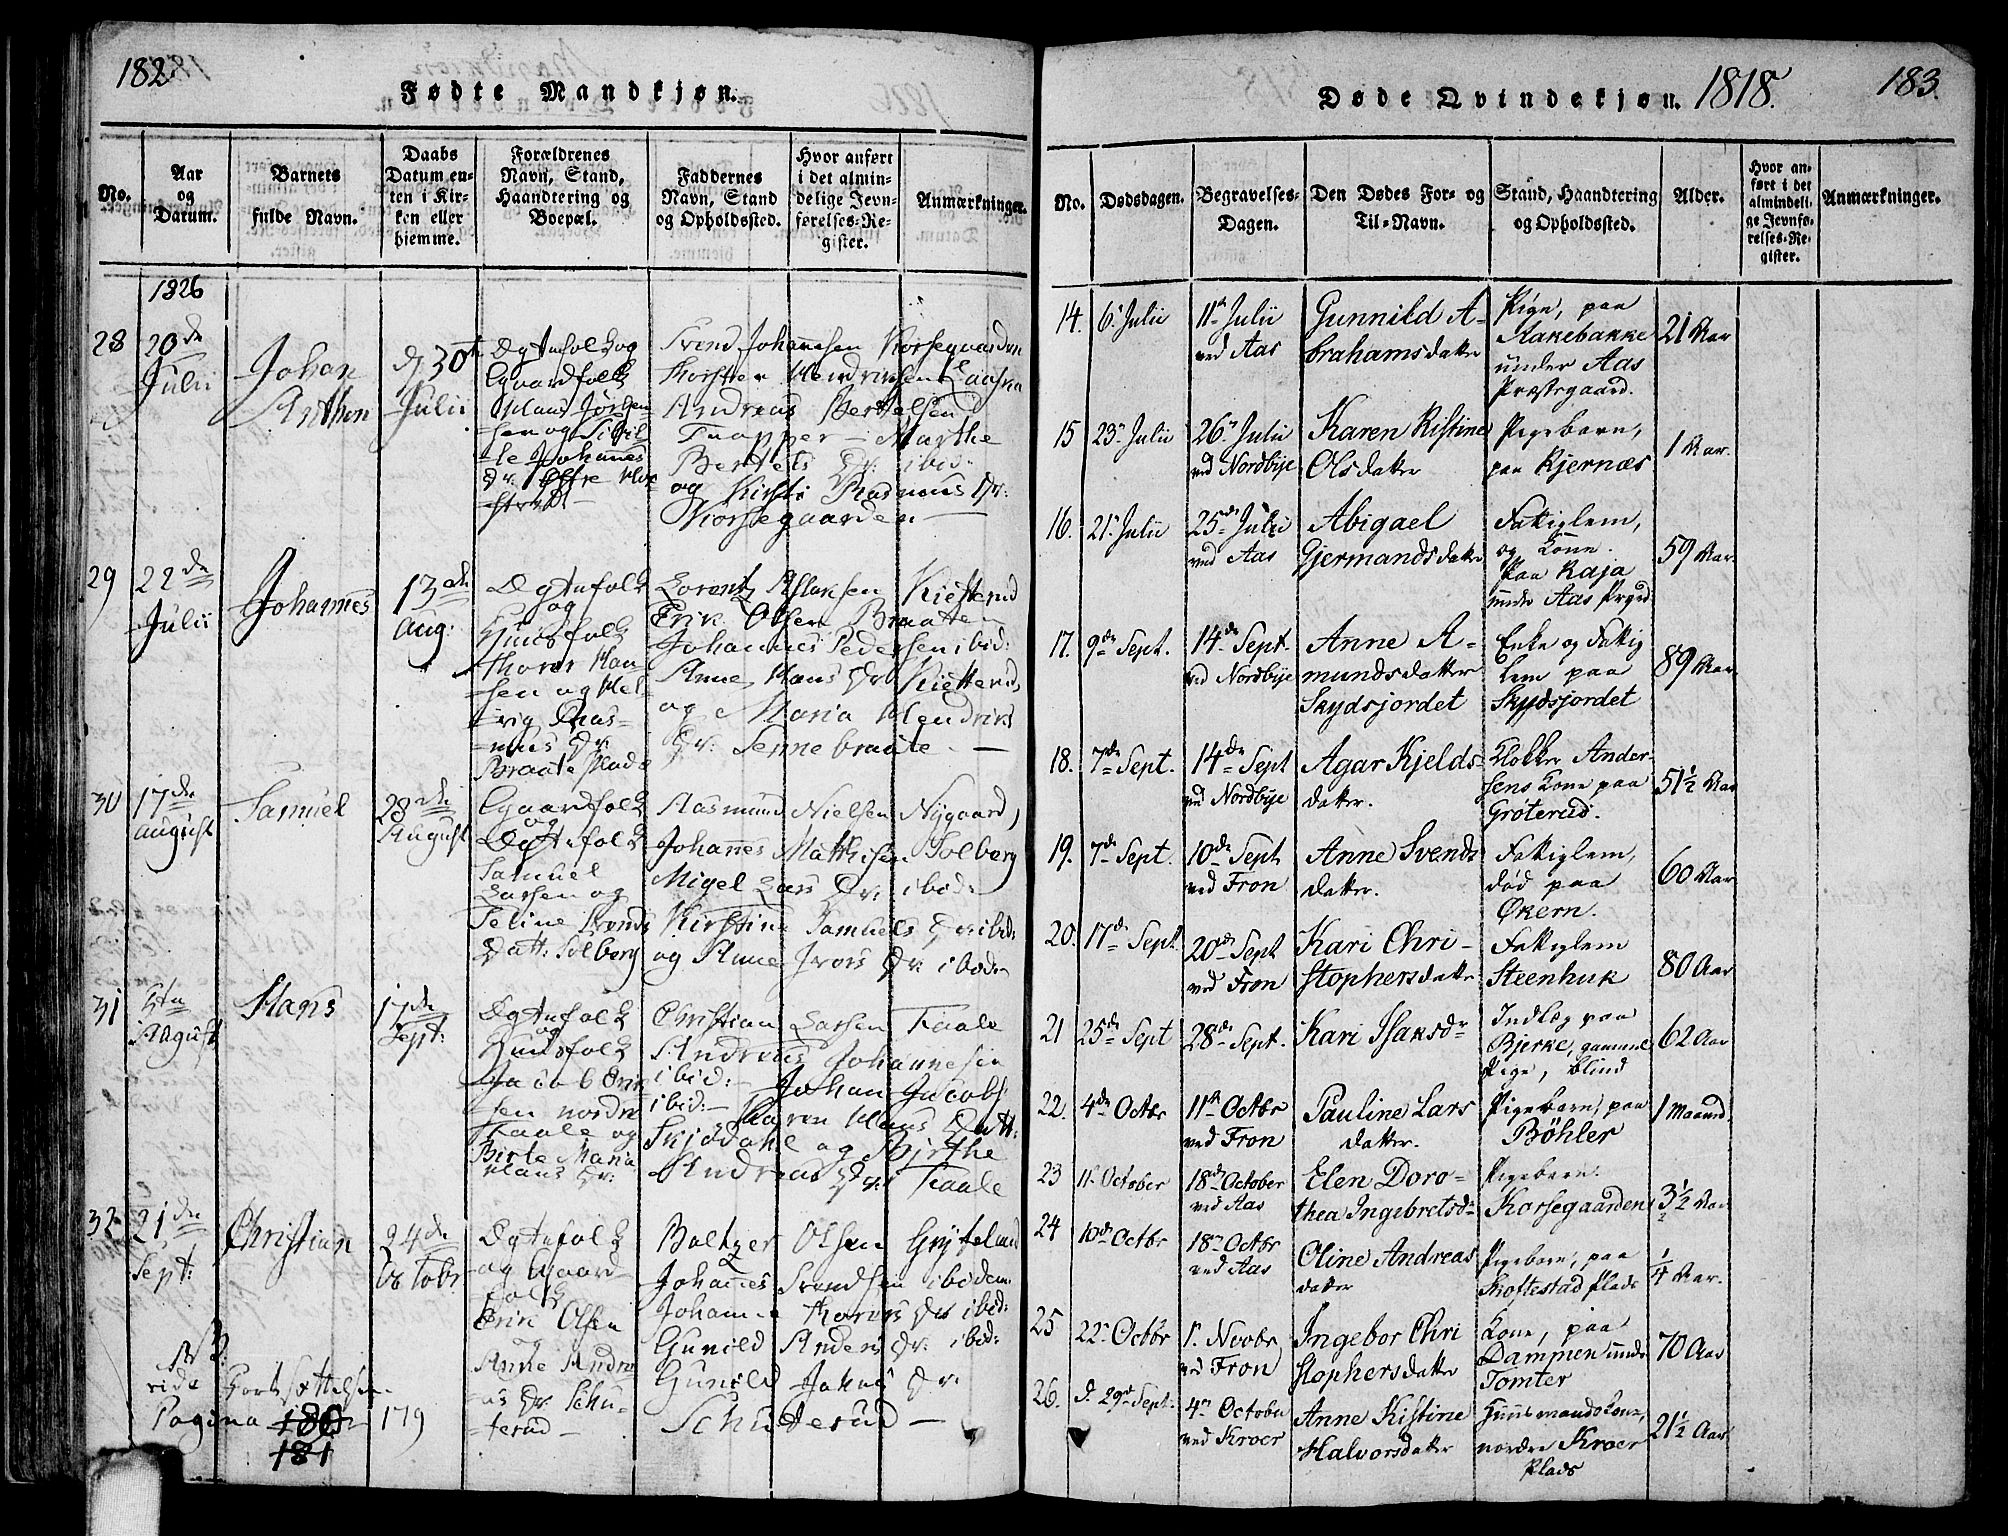 182
Fødte Mandkjøn.
No.
Aar
og
Datum.
Barnets
fulde Navn.
Daabs
Datum en-
ten i Kir-
ken eller
hjemme.
Forældrenes
Navn, Stand,
Haandtering og
Boepæl.
Faddernes
Navn, Stand
og Opholdssted.
Hvor anført
i det almin-
delige Jevn-
førelses-Re-
gister.
Anmærkninger.
1826
28
20de
Julii
Johan
Anthon
d. 30te
Julii
Ægtefolk og
Gaardfolk
Hans Jörgen-
sen og Sibil-
le Johannes
Dr.
Svend Johannsen Korsegaarden
Thorsten Hendriksen
Andreas Bertelsen
Trapper - Marthe
Bertels Dr: ibid:
og Kirsti Rasmus Dr:
Korsegaarden
29
22de
Julii
Johannes
13de
Aug:
Ægtefolk
og
Huusfolk
Thorer Han-
sen og Hel-
vig Ras-
mus Dr.
Braate Plads
Lorentz Aslaksen Kietterud
Erik Olsen Braaten
Johannes Pedersen ibid:
Anne Hans Dr Kietterud,
og Maria Hendriks
Dr: Sennebraate
30
17de
August
Samuel
28de
August
Gaardfolk
og
Ægtefolk
Samuel
Larsen og
Seline Svends
Datt: Solberg
Rasmund Nielsen Nygaard,
Johannes Mathisen Solberg
Migel Lars Dr: ibid:
Kirstine Samuels Dr ibid:
og Anne Ivers Dr: ibid:
31
4de
August
Hans
17de
Sept:
Ægtefolk
og
Huusfolk
Jacob Erik-
sen nordre
Kaale og
Birte Maria
Hans Dr:
Christian Larsen Kaale
Andreas Johannesen
ibid: Johan Jacobs
ibid: - Karen Hans Datt:
Skiødahl og Birthe
Andreas Dr: Kaale
32
21de
Sept:
Christian
24de
Octobr
Ægtefolk
og Gaard-
folk
Erik Olsen
og
Anne Andre-
as Dr. Schu-
terud
Baltzer Olsen Gryteland
Johannes Svendsen ibidem
Johanne Thorers Dr ibid:
Gunild Anders Dr: ibid:
Gunild Jakobs Dr:
Schuterud
NB
vide Fortsættelsen
Pagina 180 179
181
Døde Qvindekjøn. 1818.
183.
No.
Dødsdagen.
Begravelses-
Dagen.
Den Dødes For- og
Til-Navn.
Stand, Haandtering
og Opholdssted.
Alder.
Hvor an-
ført i det
almindeli-
ge Jevnfø-
relses-Re-
gister.
Anmærkninger.
14. 6. Julii
11te Julii
ved Aas
Gunnild A-
brahamsdatter
Pige, paa
Aakebakke
under Aas
Præstegaard.
21 Aar
15 23. Julii
26. Julii
ved Nordbye
Karen Kistine
Olsdatter
Pigebarn,
paa Kjernæs
1 Aar.
16. 21. Julii
25de Julii
ved Aas
Abigael
Gjermandsdatter
Fattiglem,
og Kone.
paa Kaja
under Aas Prgrd
59 Aar.
17. 9de Sept.
14de Sept.
ved Nordbye
Anne A-
mundsdatter
Skydsjordet
Enke og Fattig
lem paa
Skydsjordet
89 Aar.
18. 7de Sept.
14de Sept
ved Nordbye
Agar Kjelds-
datter.
Klokker Ander-
sens Kone paa
Grøterud.
51½ Aar
19. 7de Sept.
10de Sept
ved Fron
Anne Svends
datter.
Fattiglem,
død paa
Økern.
60 Aar
20. 17de Sept.
20de Sept
ved Fron
Kari Chri-
stophersdatter
Fattiglem
Steenhuk
80 Aar
21 25de Sept
28de Sept.
Kari Isaksdr
Indlæg paa
Bjerke, gammel
Pige, blind
62 Aar
22. 4de Octbr
11te Octbr
ved Fron
Pauline Lars
datter.
Pigebarn, paa
Böhler
1 Maaned.
23 11. October
18de October
ved Aas
Elen Doro-
thea Ingebretsd.
Pigebarn.
Korsegaarden
3½ Aar
24 10de Octbr
18de Octbr
ved Aas
Oline Andreas
datter
Pigebarn, paa
Skoftestad Plads
¼ Aar.
25 22. Octbr
1. Novbr
ved Fron
Ingebor Chri
stophersdatter
Kone, paa
Dampen under
Tomter
70 Aar
26. d. 29de Sept.
4de October
ved Kroer
Anne Kistine
Halvorsdatter
Huusmandskone,
nordre Kroer
Plads
21½ Aar